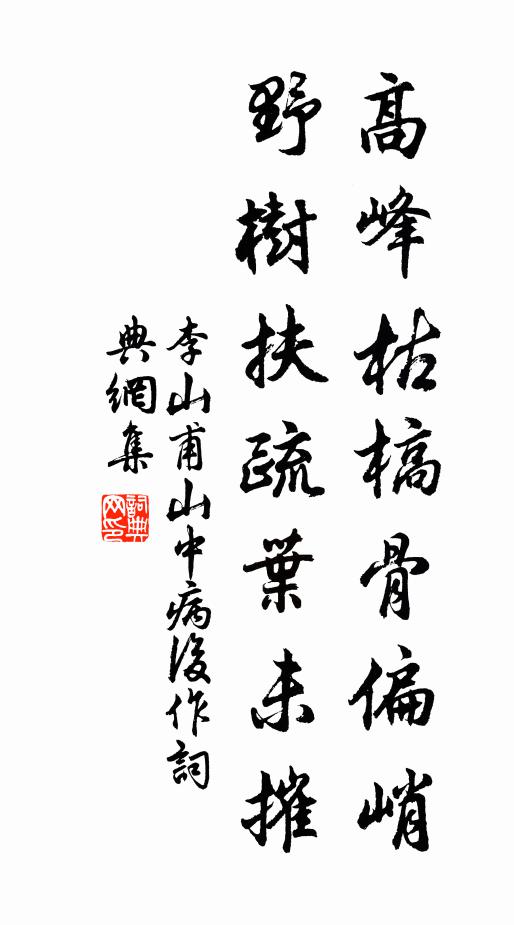 高峰枯槁骨偏峭
野樹扶疏葉未摧
李山甫山中病後作詞
典網集
詞典网印